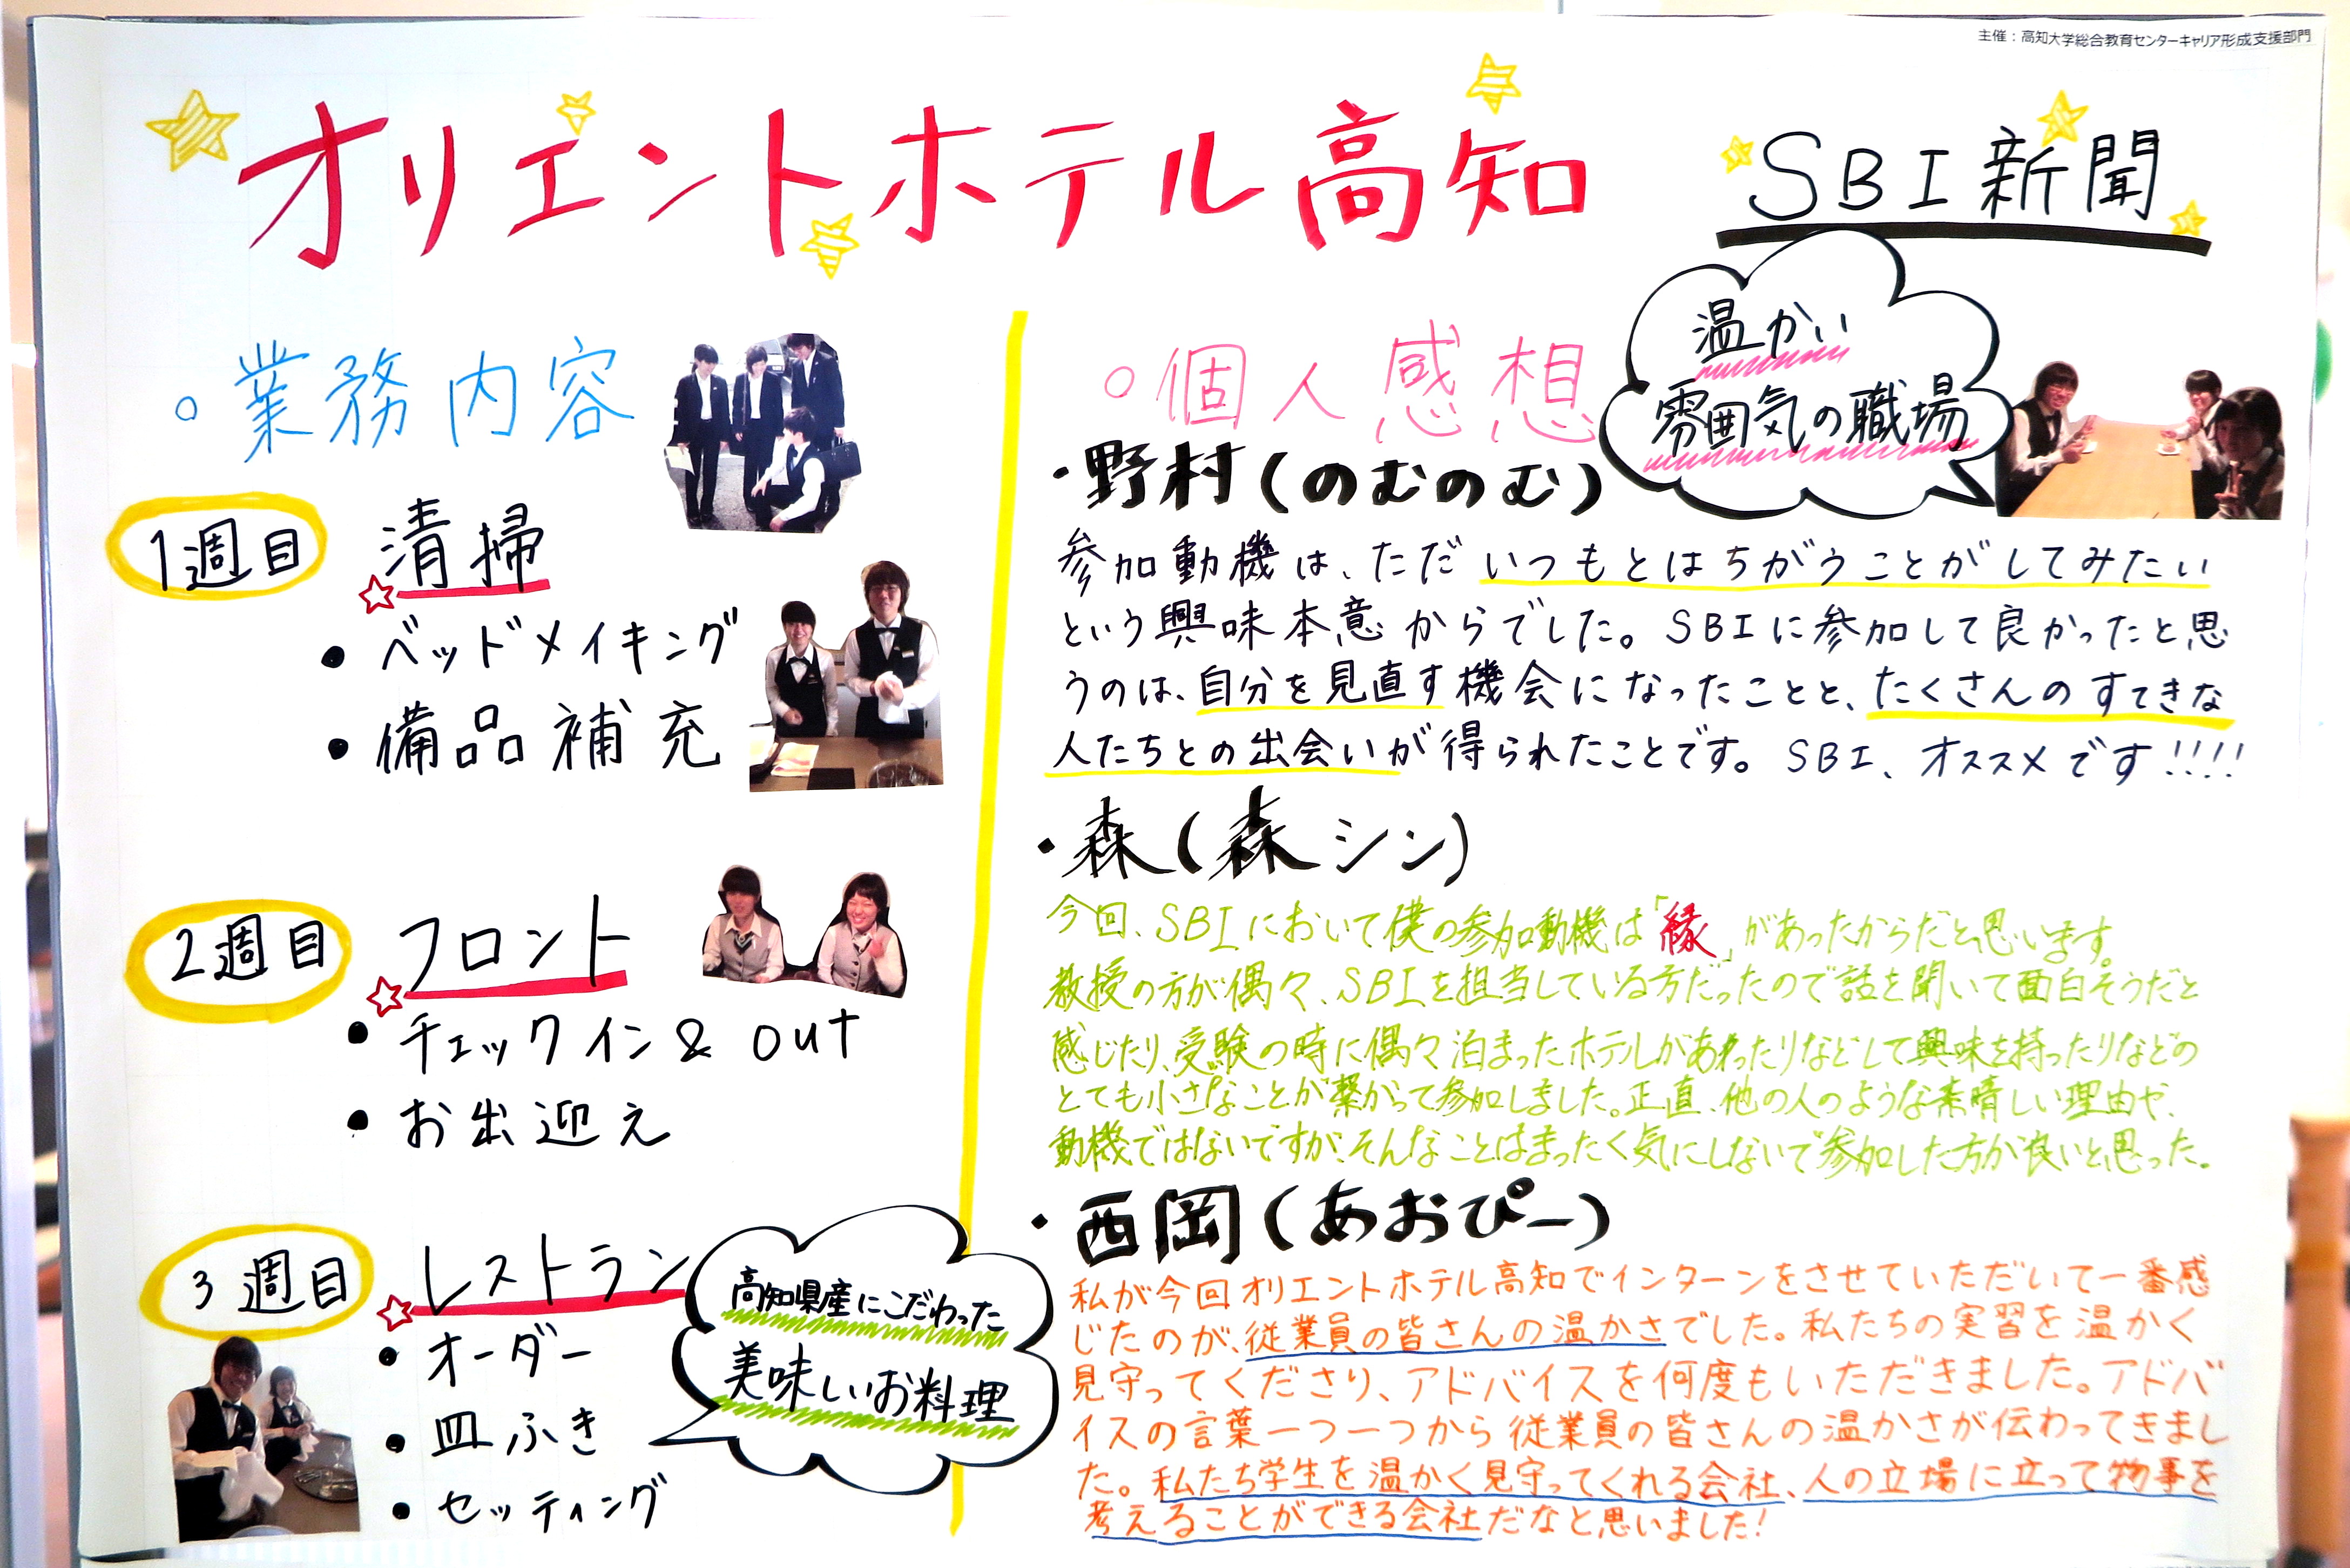 主催：高知大学総合教育センターキャリア形成支援部門
オリエントホテル高知
SBI新聞
○業務内容
1週目
清掃
・ベッドメイキング
・備品補充
2週目
フロント
・チェックイン& out
・お出迎え
3週目
レストラン
・オーダー
・皿ふき
・セッティング
高知県産にこだわった
美味しいお料理
○個人感想
温かい
雰囲気の職場
・野村(のむのむ)
参加動機は、ただいつもとはちがうことがしてみたい
という興味本意からでした。SBIに参加して良かったと思
うのは、自分を見直す機会になったことと、たくさんのすてきな
人たちとの出会いが得られたことです。SBI、オススメです!!!!
・森(森シン)
今回、SBIにおいて僕の参加動機は「縁」があったからだと思います。
教授の方が偶々、SBIを担当している方だったので話を聞いて面白そうだと
感じたり、受験の時に偶々泊まったホテルがあったりなどして興味を持ったりなどの
とても小さなことが繋がって参加しました。正直、他の人のような素晴しい理由や、
動機ではないですが、そんなことはまったく気にしないで参加した方が良いと思った。
・西岡(あおぴー)
私が今回オリエントホテル高知でインターンをさせていただいて一番感
じたのが、従業員の皆さんの温かさでした。私たちの実習を温かく
見守ってくださり、アドバイスを何度もいただきました。アドバ
イスの言葉一つ一つから従業員の皆さんの温かさが伝わってきまし
た。私たち学生を温かく見守ってくれる会社、人の立場に立って物事を
考えることができる会社だなと思いました!